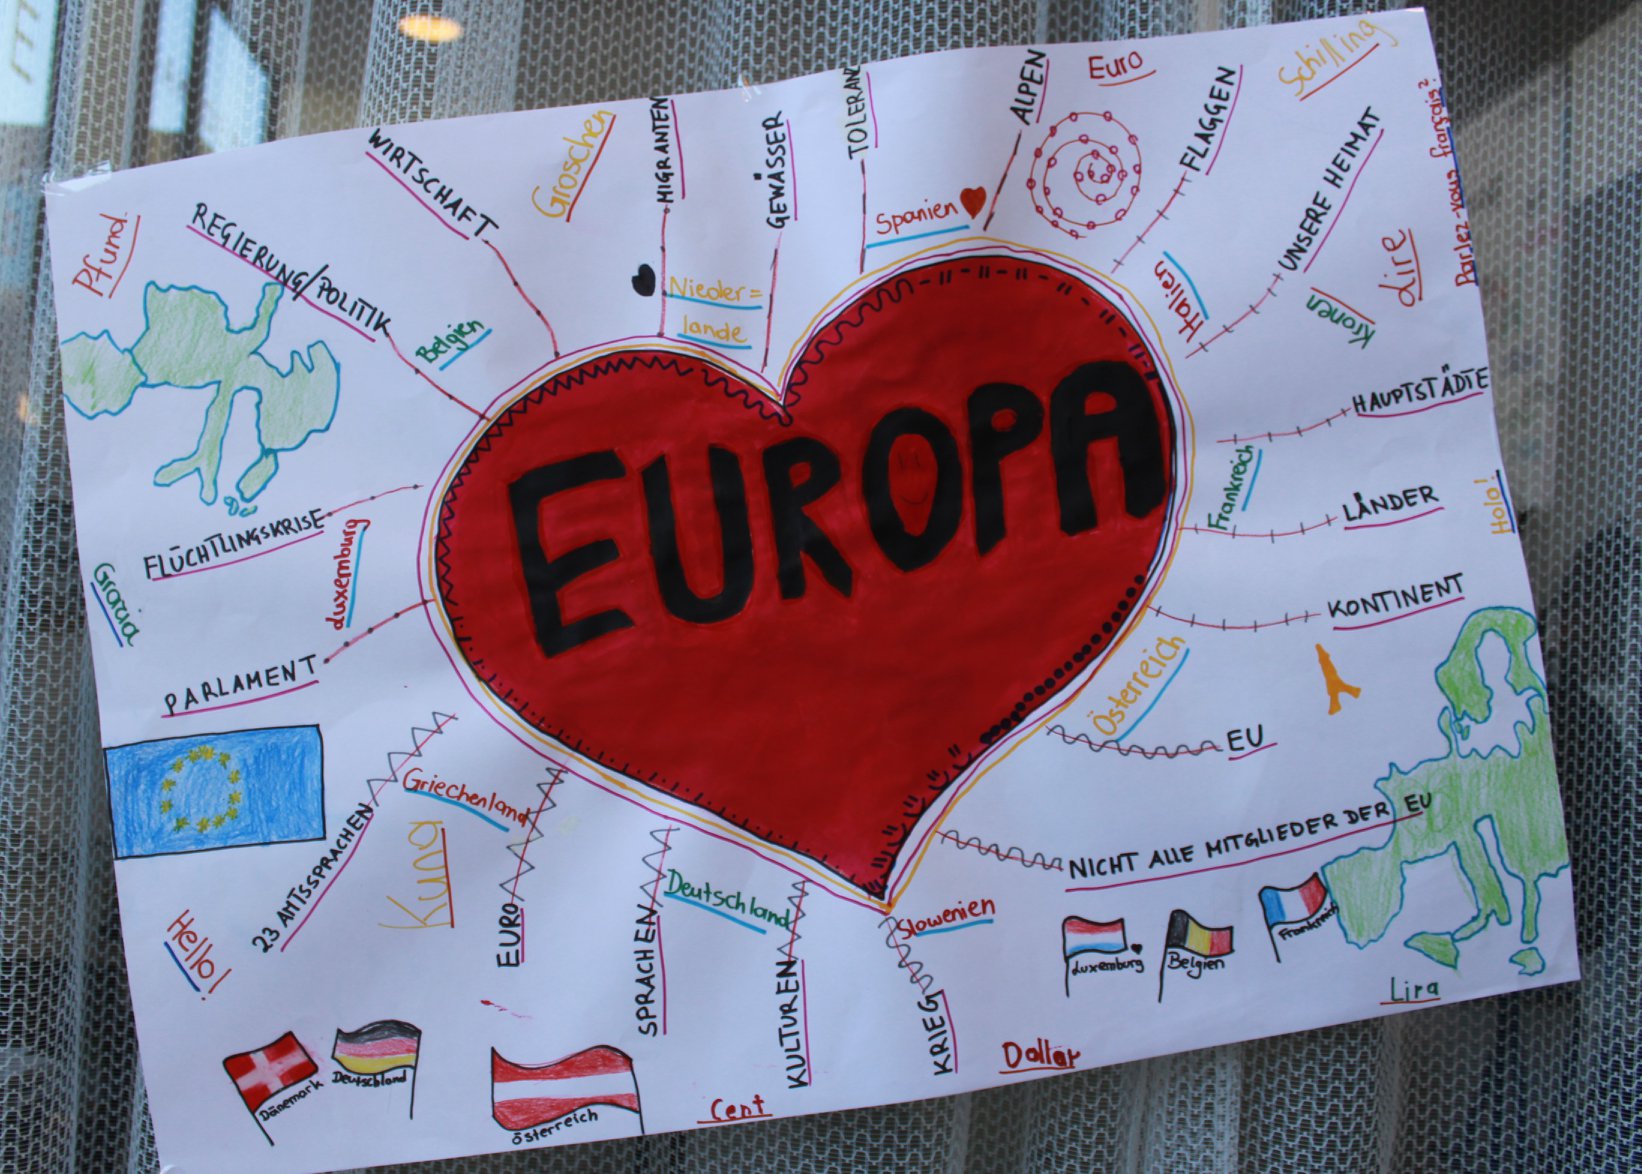 EUROPA
WIRTSCHAFT
Groschen
MIGRANTEN
GEWÄSSER
TOLERANZ
ALPEN
Euro
FLAGGEN
Schilling
Parlez-vous français?
Pfund
REGIERUNG/POLITIK
Belgien
Nieder=
lande
Spanien
Italien
UNSERE HEIMAT
Kronen
Lire
HAUPTSTÄDTE
Frankreich
LÄNDER
Holo!
KONTINENT
Österreich
EU
NICHT ALLE MITGLIEDER DER EU
FLÜCHTLINGSKRISE
Luxemburg
PARLAMENT
23 AMTSSPRACHEN
Griechenland
Kuna
Hello!
EURO
SPRACHEN
Deutschland
KULTUREN
Slowenien
KRIEG
Luxemburg
Belgien
Frankreich
Lira
Dollar
Cent
Dänemark
Deutschland
Österreich